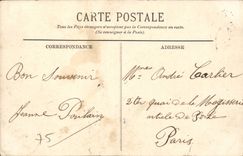 CARTE POSTALE
Tous les Pays étrangers n'acceptent pas la Correspondance au recto.
(Se renseigner à la Poste).
CORRESPONDANCE
ADRESSE
Bon Souvenir
Jeanne
75
Mme André Cartier
2 ter Quai de la Mégisserie
Paris